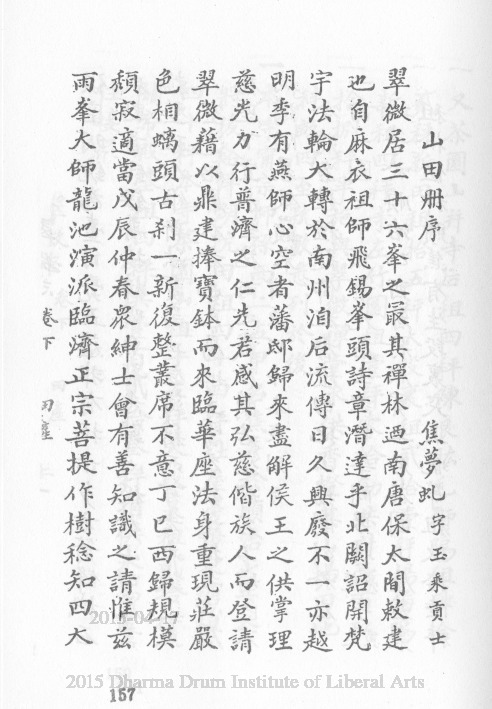 山田册序
焦夢虬字玉乘貢士
翠微居三十六峯之最其禪林迺南唐保大間敕建
也自麻衣祖師飛錫峯頭詩章潛達乎北闕詔開梵
宇法輪大轉於南州洎后流傳日久興廢不一亦越
明季有燕師心空者藩邸歸來盡解侯王之供掌理
慈光力行普濟之仁先君感其弘慈偕族人而登請
翠微藉以鼎建捧寶鉢而來臨華座法身重現莊嚴
色相螭頭古刹一新復整叢席不意丁巳西歸規模
頹寂適當戊辰仲春眾紳士會有善知識之請惟茲
雨峯大師龍池演派臨濟正宗菩提作樹稔知四大
卷下
2015-04-17
2015 Dharma Drum Institute of Liberal Arts
157